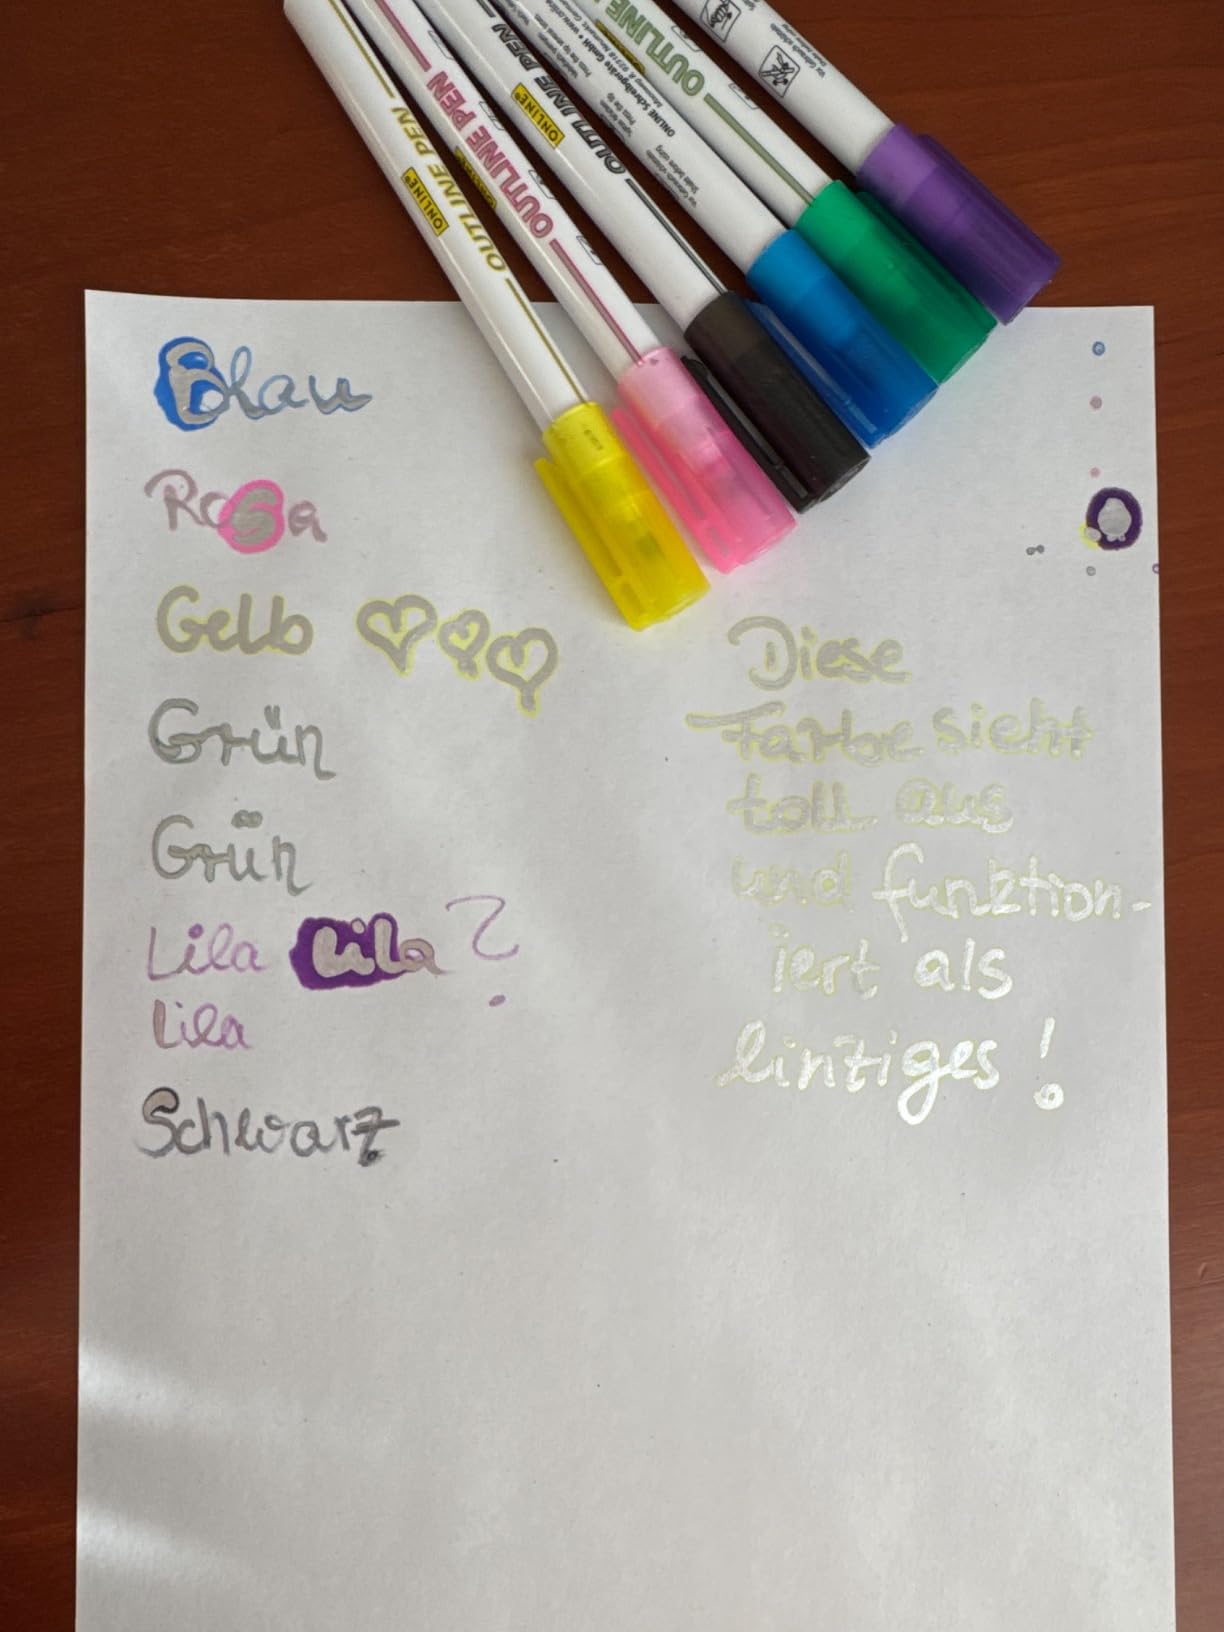 OUTLINE PEN
ONLINE
OUTLINE PEN
OUTLINE PEN
ONLINE
OUTLINE
ONLINE Schreibgeräte GmbH
Blau
Rosa
Gelb
Grün
Grün
Lila Lila ?
Lila
Schwarz
Diese
Farbe sieht
toll aus
und funktion-
iert als
einziges !